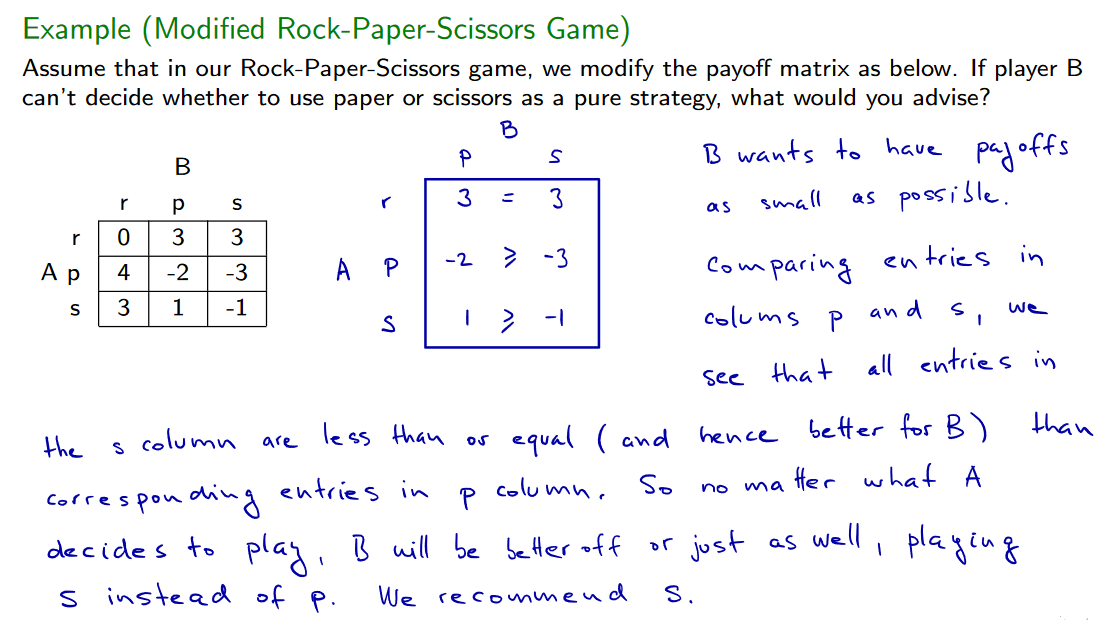 Example (Modified Rock-Paper-Scissors Game)
Assume that in our Rock-Paper-Scissors game, we modify the payoff matrix as below. If player B
can't decide whether to use paper or scissors as a pure strategy, what would you advise?
B
r p s
r 0 3 3
A p 4 -2 -3
s 3 1 -1
B
p s
r 3 = 3
A p -2 ⩾ -3
s 1 ⩾ -1
B wants to have payoffs
as small as possible.
Comparing entries in
colums p and s, we
see that all entries in
the s column are less than or equal (and hence better for B) than
corresponding entries in p column. So no matter what A
decides to play, B will be better off or just as well, playing
s instead of p. We recommend s.